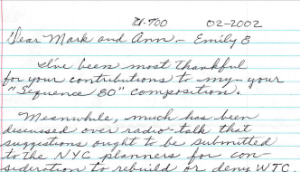 21-700 02-2002
Dear Mark and Ann - Emily B
I've been most thankful
for your contributions to my - your
"Sequence 80" composition.
Meanwhile, much has been
discussed over radio-talk that
suggestions ought to be submitted
to the NYC planners for con-
sideration to rebuild or deny WTC.